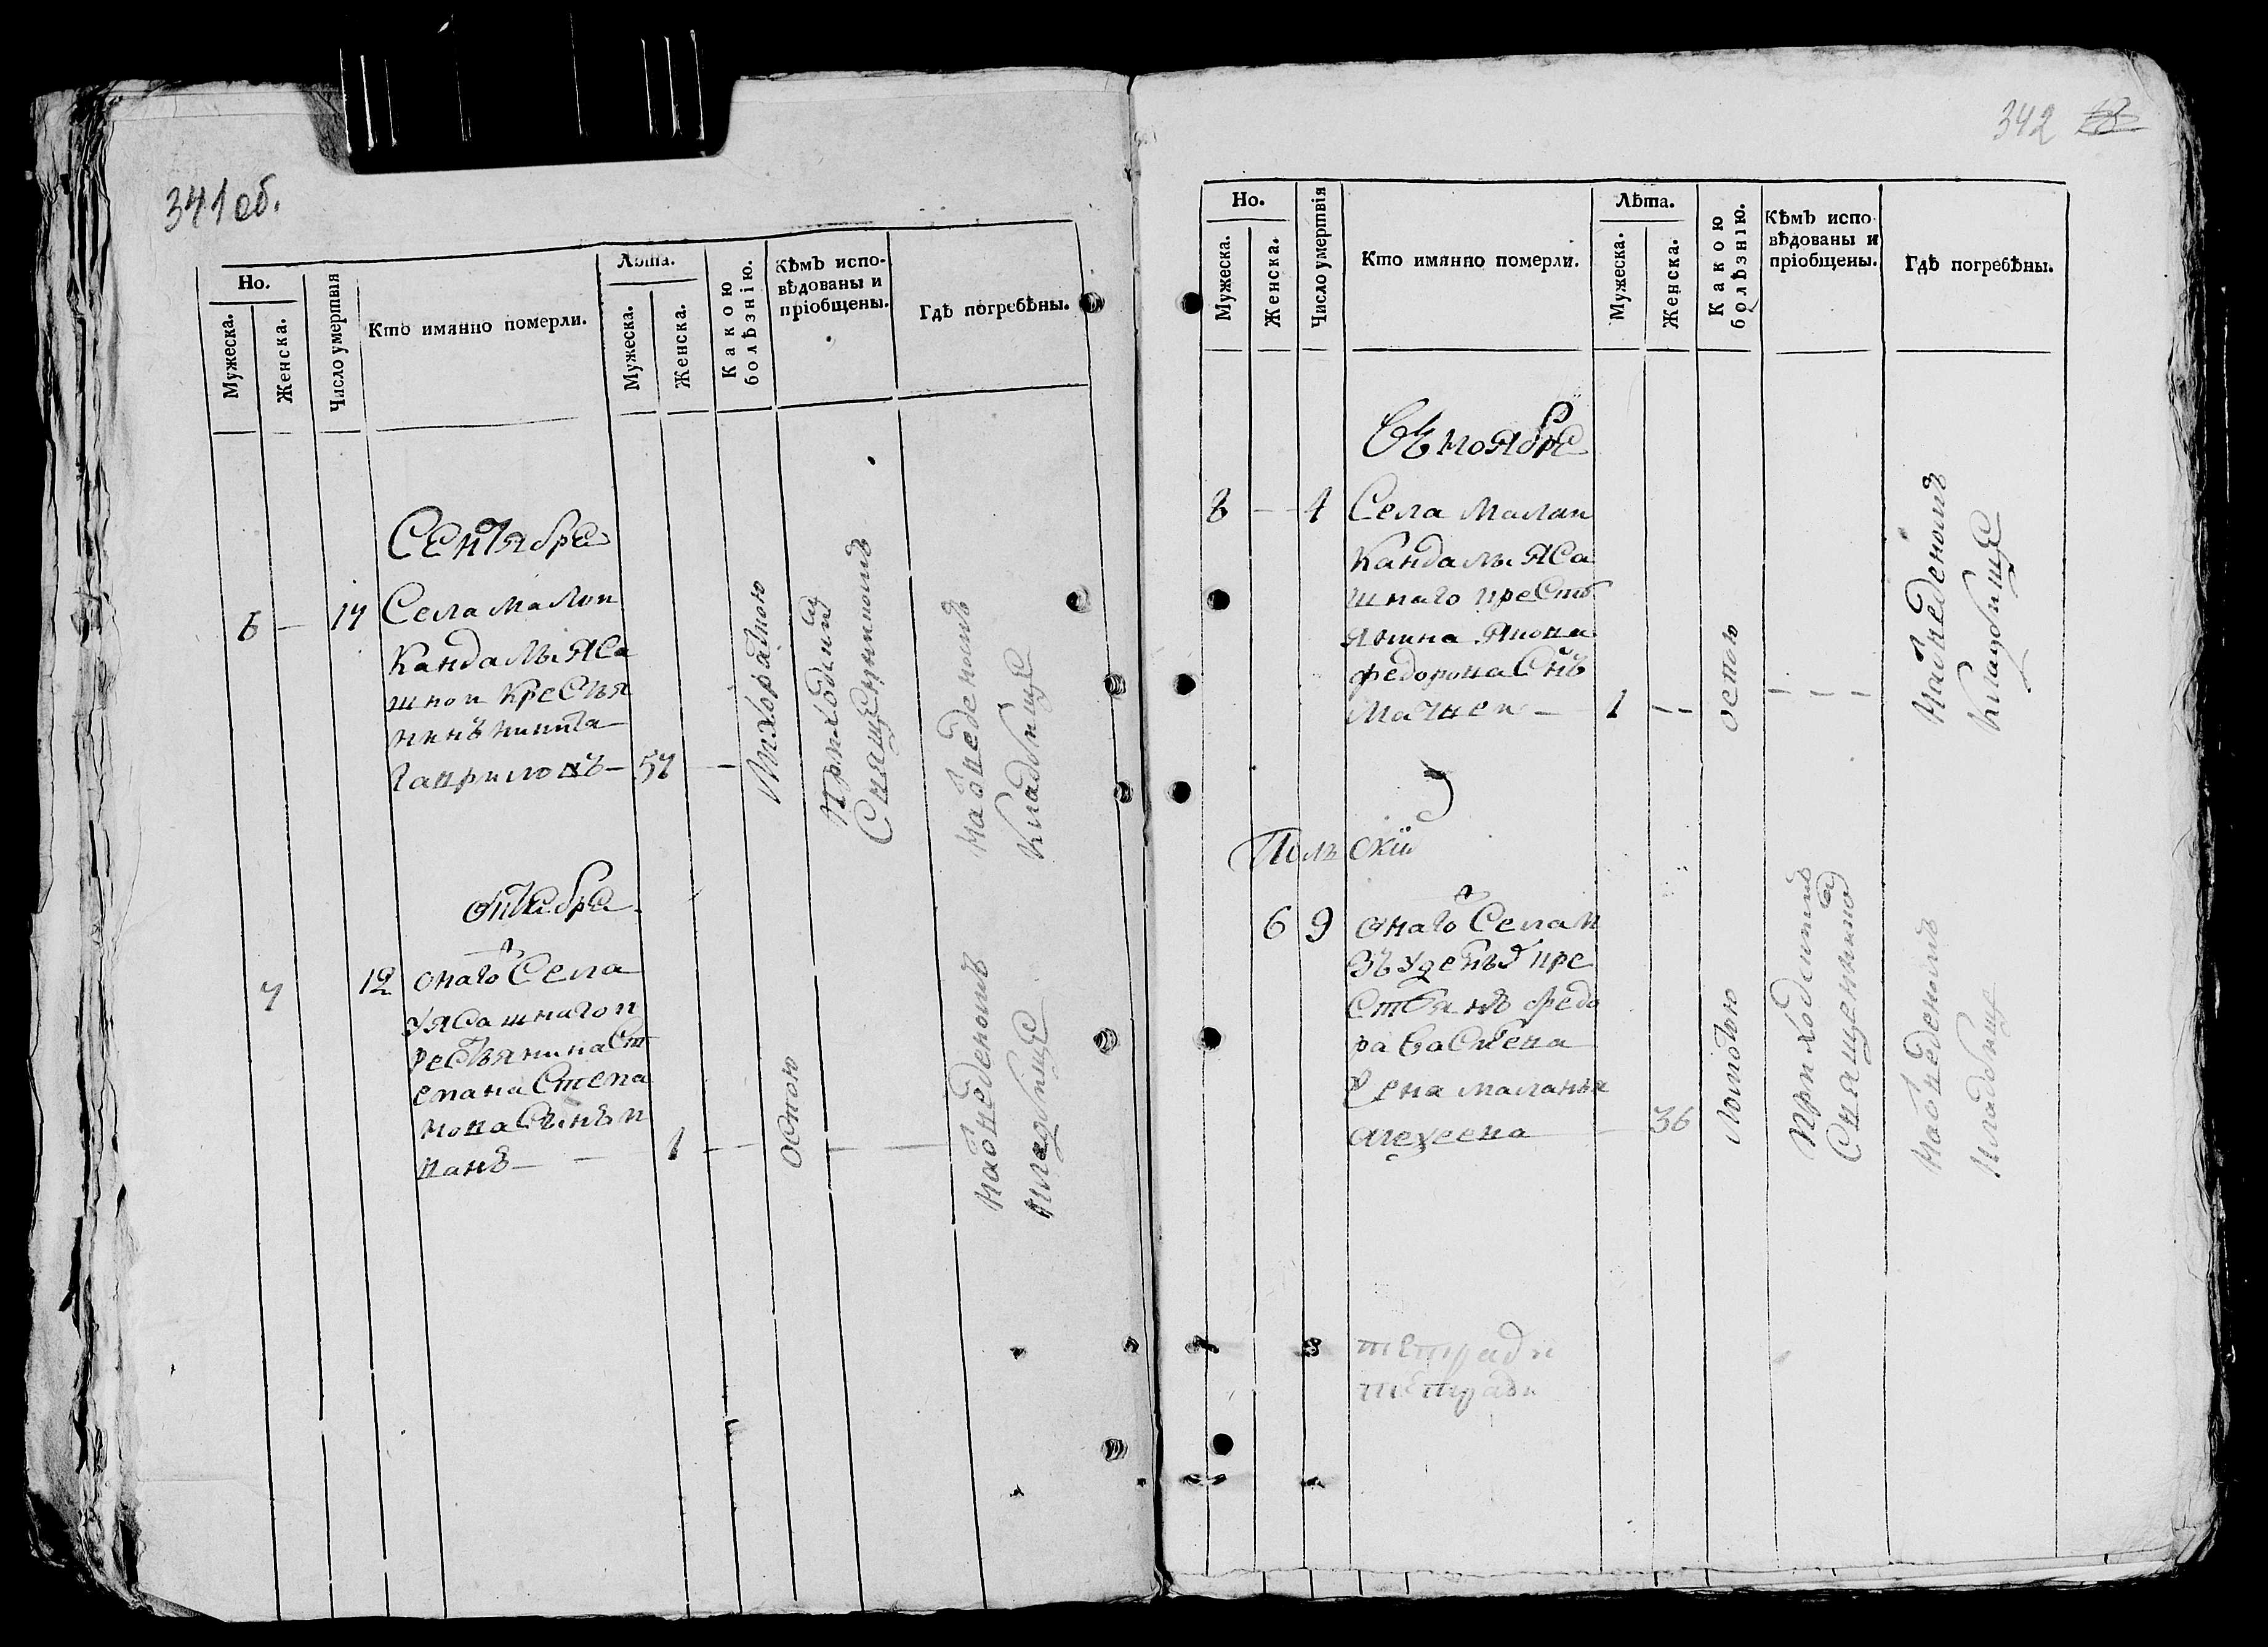 341 об.
Но.
Мужеска.
Женска.
Число умертвія
Кто имянно померли.
Лѣта.
Мужеска.
Женска.
Какою болѣзнію.
Кѣмъ испо-
вѣдованы и
пріобщены.
Гдѣ погребѣны.
Сентября
6 — 14 Села Малои
Кандалы яса
шнои крестья
нинъ никита
гавриловъ — 57 —
Лихорадкою
Приходскимъ
Священникомъ
На отведеномъ
кладбище
октября
7 12 онаго Села
у ясашнаго к
рестьянина Ст
епана Степа
нова Сынъ и
ванъ — — 1 —
оспою
На отведеномъ
кладбище
342
Но.
Мужеска.
Женска.
Число умертвія
Кто имянно померли.
Лѣта.
Мужеска.
Женска.
Какою болѣзнію.
Кѣмъ испо-
вѣдованы и
пріобщены.
Гдѣ погребѣны.
Въ ноябре
8 — 4 Села Малои
Кандалы яса
шнаго крест
янина
федорова Снъ
Матвеи — 1 — —
оспою
— — —
На отведеномъ
кладбище
6 9 онаго Села
крe
стьянъ федо
ра
жена маланья
алеѯеева — 36
Приходскимъ
Священникомъ
На отведеномъ
кладбище
тетради
тетради